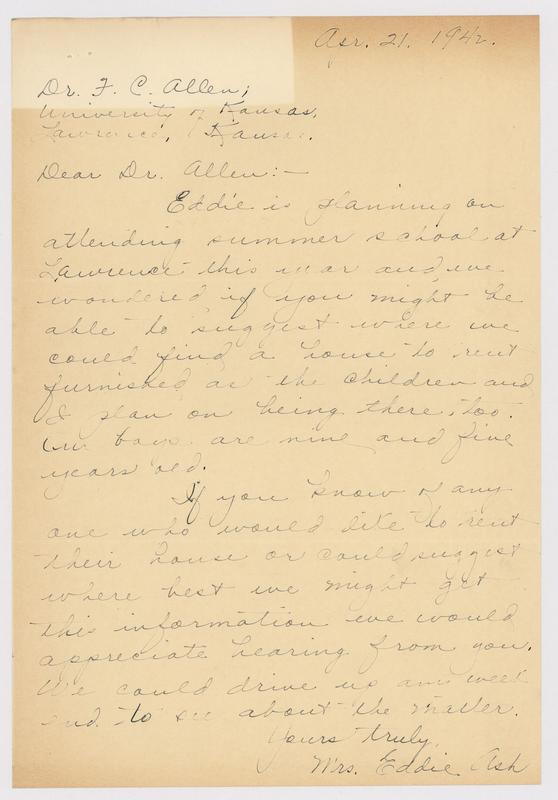 Apr. 21. 1942.
Dr. F. C. Allen;
University of Kansas,
Lawrence, Kansas.
Dear Dr. Allen:-
Eddie is planning on
attending summer school at
Lawrence this year and we
wondered if you might be
able to suggest where we
could find a house to rent
furnished as the children and
I plan on being there, too.
Our boys are nine and five
years old.
If you know of any
one who would like to rent
their house or could suggest
where best we might get
this information we would
appreciate hearing from you.
We could drive up any week
end to see about the matter.
Yours truly,
Mrs. Eddie Ash